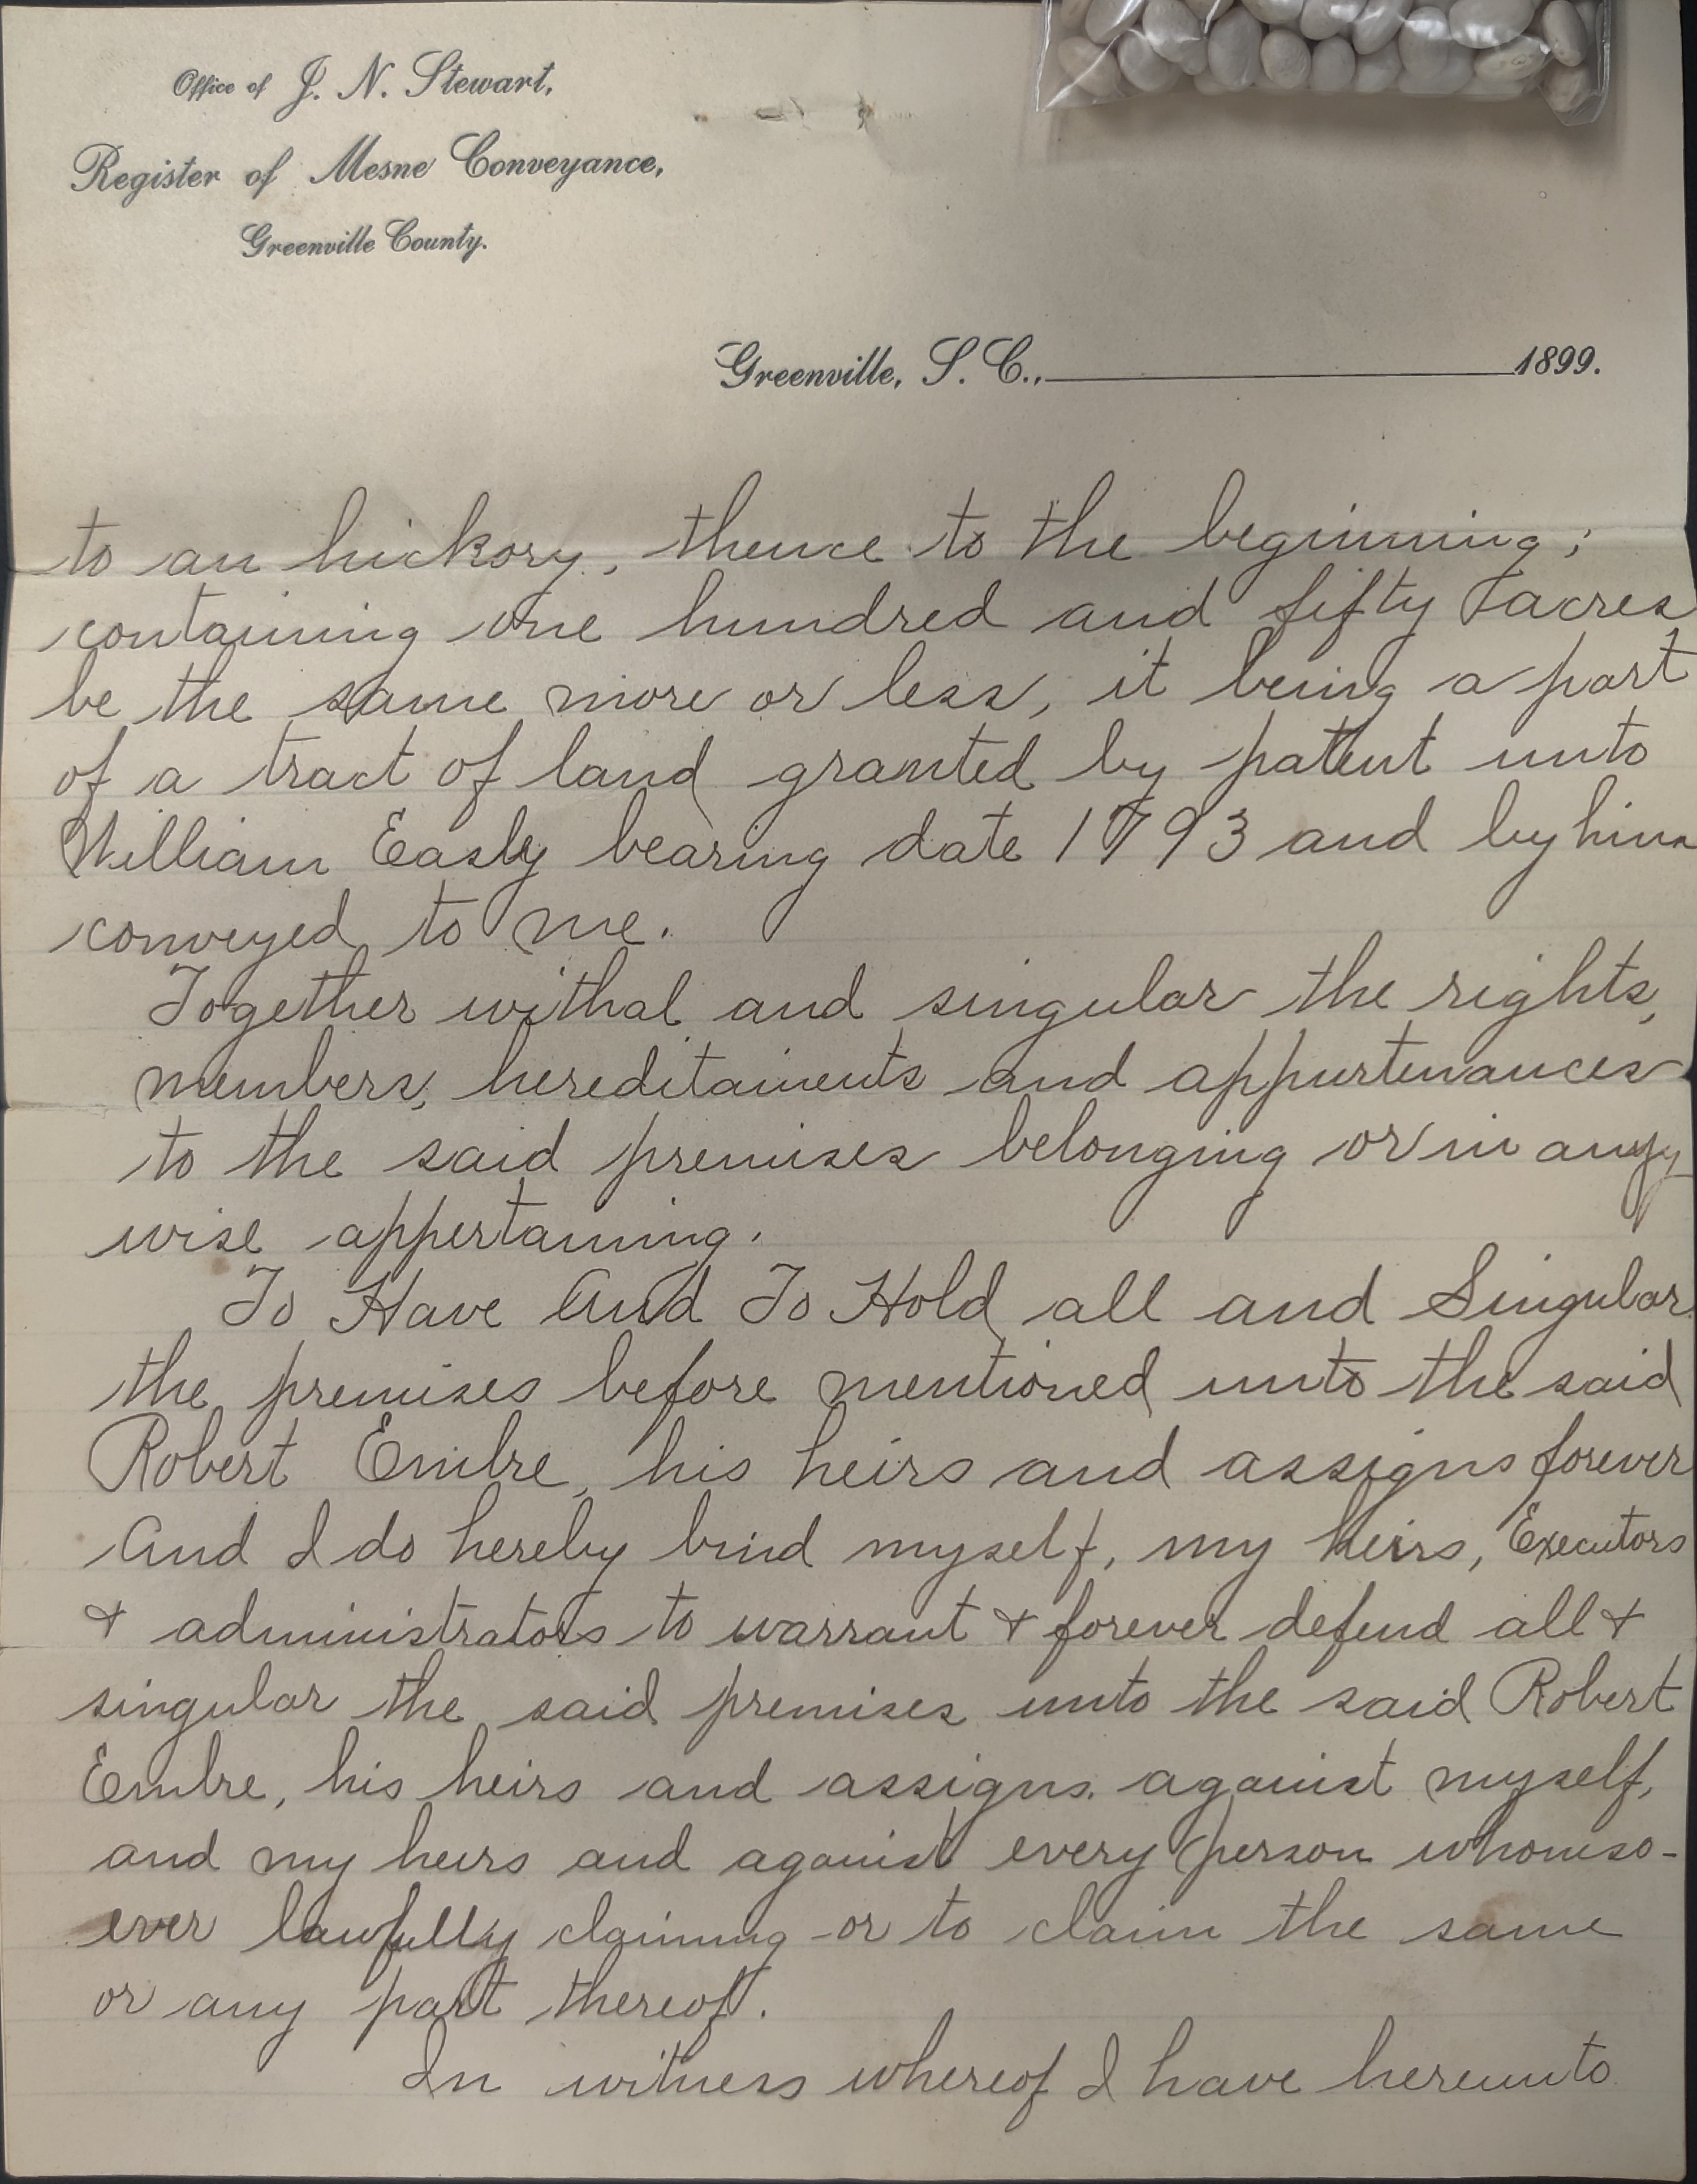 Office of J. N. Stewart,
Register of Mesne Conveyance,
Greenville County.
Greenville, S. C., 1899.
to an hickory, thence to the beginning;
containing one hundred and fifty acres
be the same more or less, it being a part
of a tract of land granted by patent unto
William Easly bearing date 1793 and by him
conveyed to me.
Together withal and singular the rights,
members, hereditaments and appurtenances
to the said premises belonging or in any
wise appertaining.
To Have And To Hold all and Singular
the premises before mentioned unto the said
Robert Embre, his heirs and assigns forever
And I do hereby bind myself, my heirs, Executors
& administrators to warrant & forever defend all &
singular the said premises unto the said Robert
Embre, his heirs and assigns. against myself,
and my heirs and against every person whomso-
ever lawfully claiming or to claim the same
or any part thereof.
In witness whereof I have hereunto